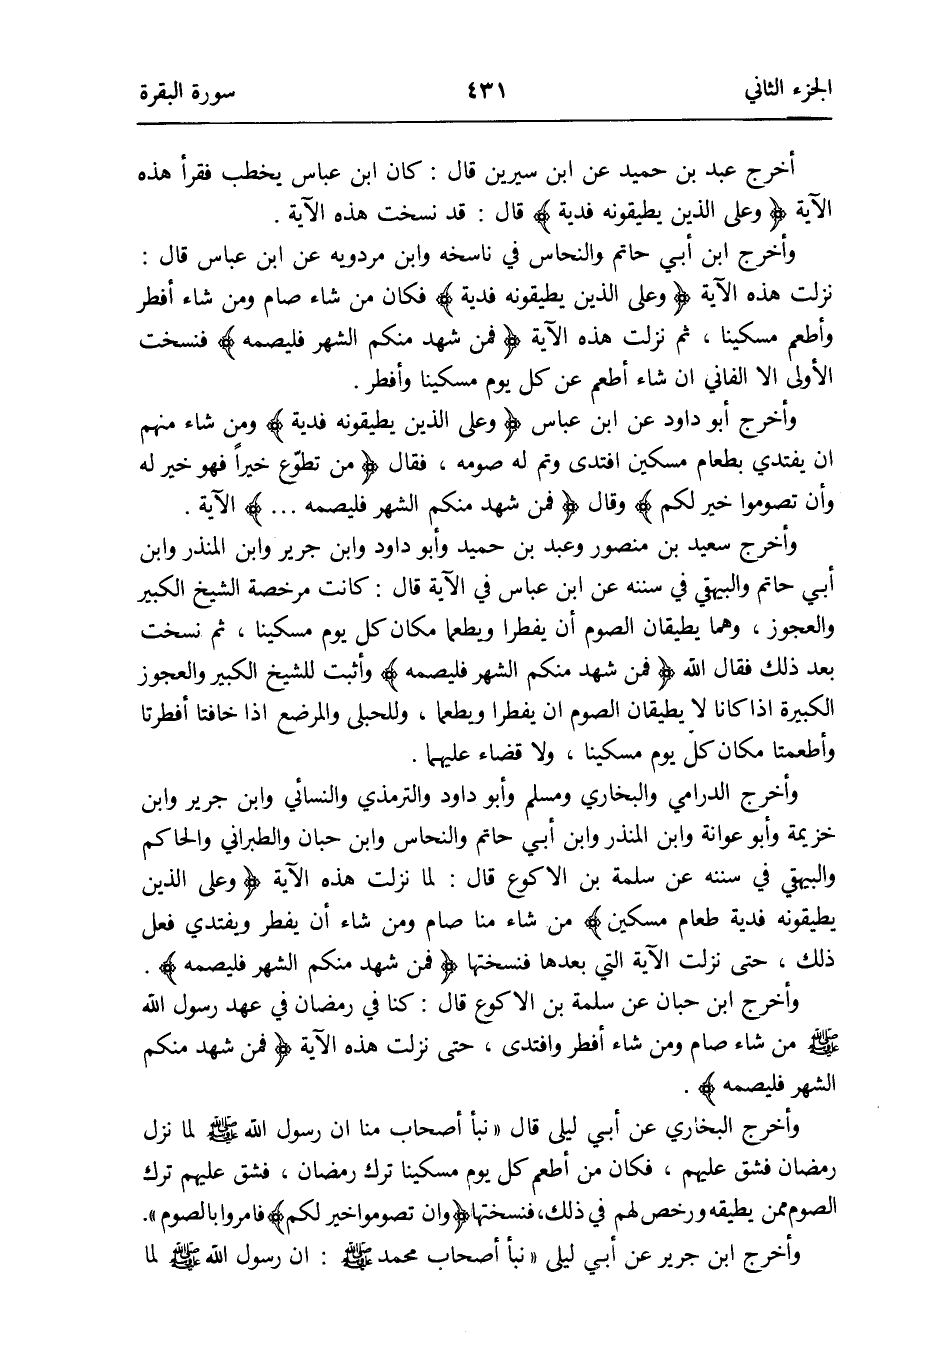 الجزء الثاني ٤٣١ سورة البقرة
أخرج عبد بن حميد عن ابن سيرين قال : كان ابن عباس يخطب فقرأ هذه
الآية ﴿ وعلى الذين يطيقونه فدية ﴾ قال : قد نسخت هذه الآية .
وأخرج ابن أبي حاتم والنحاس في ناسخه وابن مردويه عن ابن عباس قال :
نزلت هذه الآية ﴿ وعلى الذين يطيقونه فدية ﴾ فكان من شاء صام ومن شاء أفطر
وأطعم مسكينا ، ثم نزلت هذه الآية ﴿ فمن شهد منكم الشهر فليصمه ﴾ فنسخت
الأولى الا الفاني ان شاء أطعم عن كل يوم مسكينا وأفطر .
وأخرج أبو داود عن ابن عباس ﴿ وعلى الذين يطيقونه فدية ﴾ ومن شاء منهم
ان يفتدي بطعام مسكين افتدى وتم له صومه ، فقال ﴿ من تطوّع خيراً فهو خير له
وأن تصوموا خير لكم ﴾ وقال ﴿ فمن شهد منكم الشهر فليصمه ... ﴾ الآية .
وأخرج سعيد بن منصور وعبد بن حميد وأبو داود وابن جرير وابن المنذر وابن
أبي حاتم والبيهقي في سننه عن ابن عباس في الآية قال : كانت مرخصة الشيخ الكبير
والعجوز ، وهما يطيقان الصوم أن يفطرا ويطعما مكان كل يوم مسكينا ، ثم نسخت
بعد ذلك فقال الله ﴿ فمن شهد منكم الشهر فليصمه ﴾ وأثبت للشيخ الكبير والعجوز
الكبيرة اذا كانا لا يطيقان الصوم ان يفطرا ويطعما ، وللحبلى والمرضع اذا خافتا أفطرتا
وأطعمتا مكان كل يوم مسكينا ، ولا قضاء عليهما .
وأخرج الدرامي والبخاري ومسلم وأبو داود والترمذي والنسائي وابن جرير وابن
خزيمة وأبو عوانة وابن المنذر وابن أبي حاتم والنحاس وابن حبان والطبراني والحاكم
والبيهقي في سننه عن سلمة بن الاكوع قال : لما نزلت هذه الآية ﴿ وعلى الذين
يطيقونه فدية طعام مسكين ﴾ من شاء منا صام ومن شاء أن يفطر ويفتدي فعل
ذلك ، حتى نزلت الآية التي بعدها فنسختها ﴿ فمن شهد منكم الشهر فليصمه ﴾ .
وأخرج ابن حبان عن سلمة بن الاكوع قال : كنا في رمضان في عهد رسول الله
ﷺ من شاء صام ومن شاء أفطر وافتدى ، حتى نزلت هذه الآية ﴿ فمن شهد منكم
الشهر فليصمه ﴾ .
وأخرج البخاري عن أبي ليلى قال « نبأ أصحاب منا ان رسول الله ﷺ لما نزل
رمضان فشق عليهم ، فكان من أطعم كل يوم مسكينا ترك رمضان ، فشق عليهم ترك
الصوم ممن يطيقه ورخص لهم في ذلك، فنسختها ﴿ وان تصوموا خير لكم ﴾ فامروا بالصوم ».
وأخرج ابن جرير عن أبي ليلى « نبأ أصحاب محمد ﷺ : ان رسول الله ﷺ لما